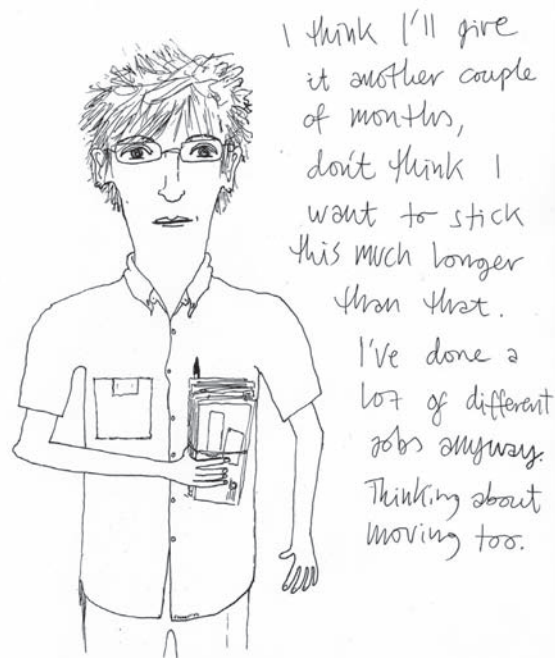 I think I'll give
it another couple
of months,
don't think I
want to stick
this much longer
than that.
I've done a
lot of different
jobs anyway.
Thinking about
moving too.